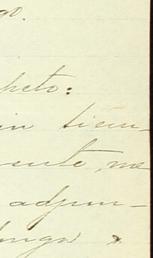 go.
peto:
in tiem-
mente, me
adjun-
tengo